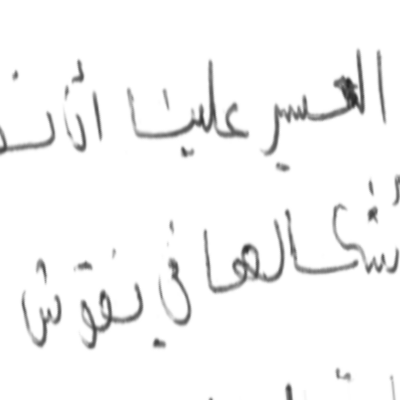 العسير علينا أن
أشكالها في نقوش